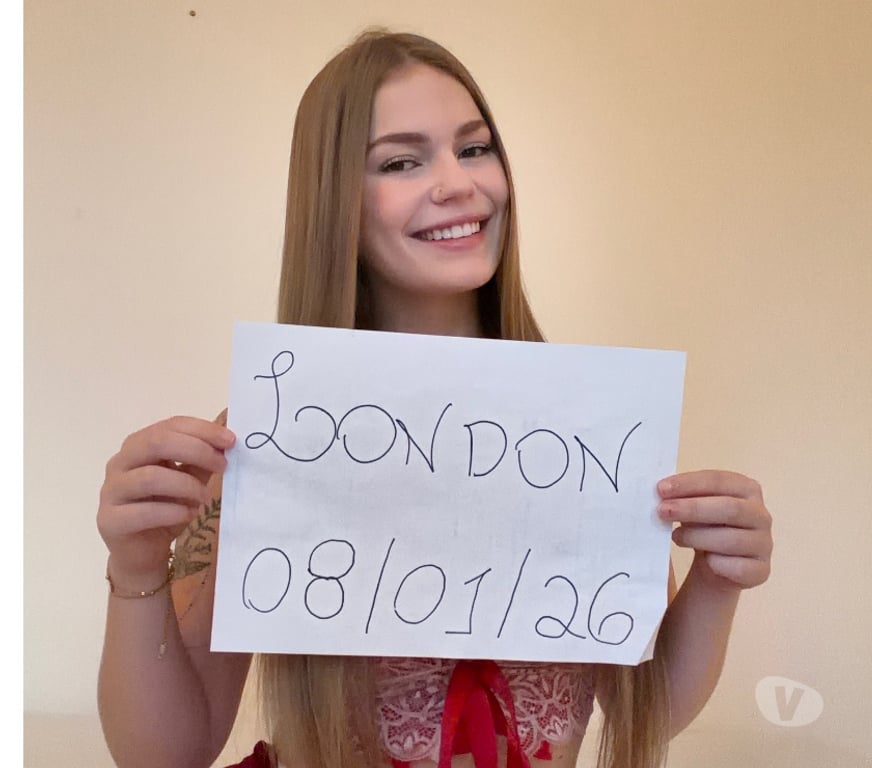 LONDON
08/01/26
V